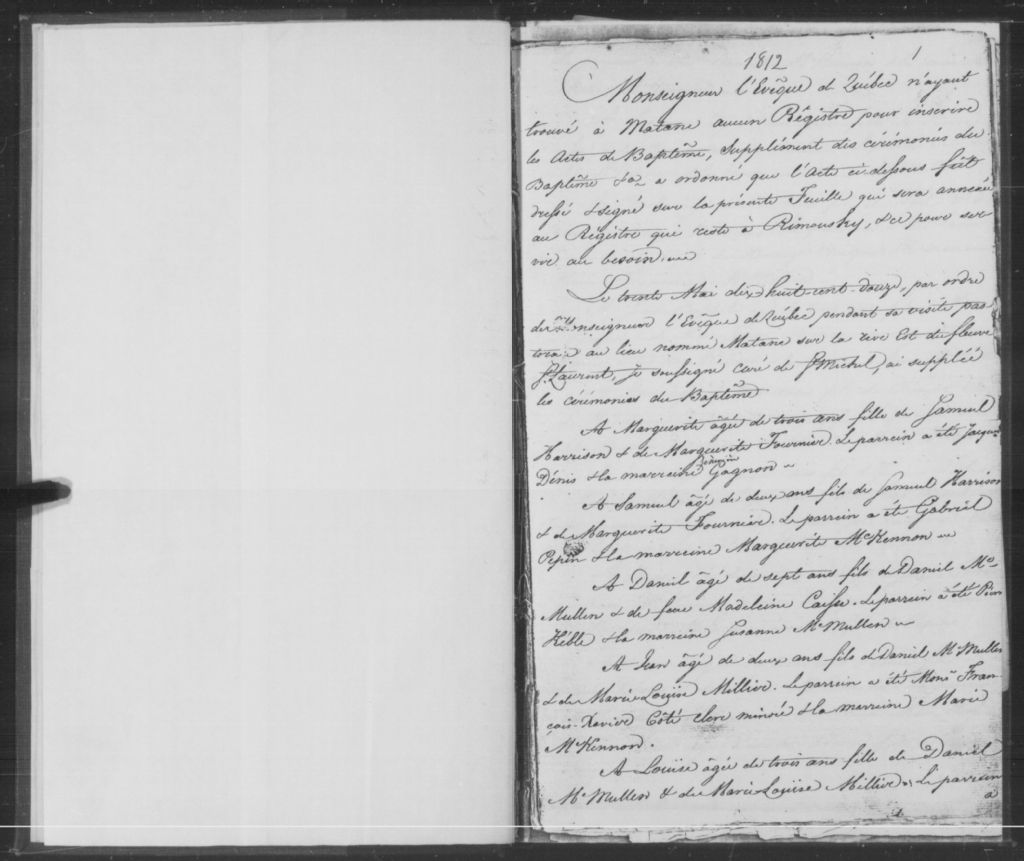 1812
1
Monseigneur l'Evêque de Québec n'ayant
trouvé à Matane aucun Régistre pour inscrire
les Actes de Baptême, Supplément des cérémonies du
Baptême &a a ordonné que l'Acte ci-dessous fût
dressé & signé sur la présente Feuille qui sera annexée
au Régistre qui reste à Rimousky, & ce pour ser-
vir au besoin.
Le trente Mai dix huit cent douze, par ordre
de Monseigneur l'Evêque de Québec pendant sa visite pas-
torale au lieu nommé Matane sur la rive Est du fleuve
St. Laurent, Je soussigné curé de St Michel, ai suppléé
les cérémonies du Baptême
A Marguerite âgée de trois ans fille de Samuel
Harrison & de Marguerite Fournier. Le parrein a été Jacques
Dénis & la marreine Gagnon
A Samuel âgé de deux ans fils de Samuel Harrison
& de Marguerite Fournier. Le parrein a été Gabriël
Pepin & la marreine Marguerite McKennon
A Daniel âgé de sept ans fils de Daniel Mc
Mullen & de feue Madeleine Caisse. Le parrein a été
Kèble & la marreine Susanne McMullen
A Jean âgé de deux ans fils de Daniel McMullen
& de Marie Louise Millier. Le parrein a été Monsr Fran-
çois-Xavier Côté clerc minoré & la marreine Marie
McKennon.
A Louise âgée de trois ans fille de Daniel
McMullen & de Marie-Louise Millier. Le parrein
a